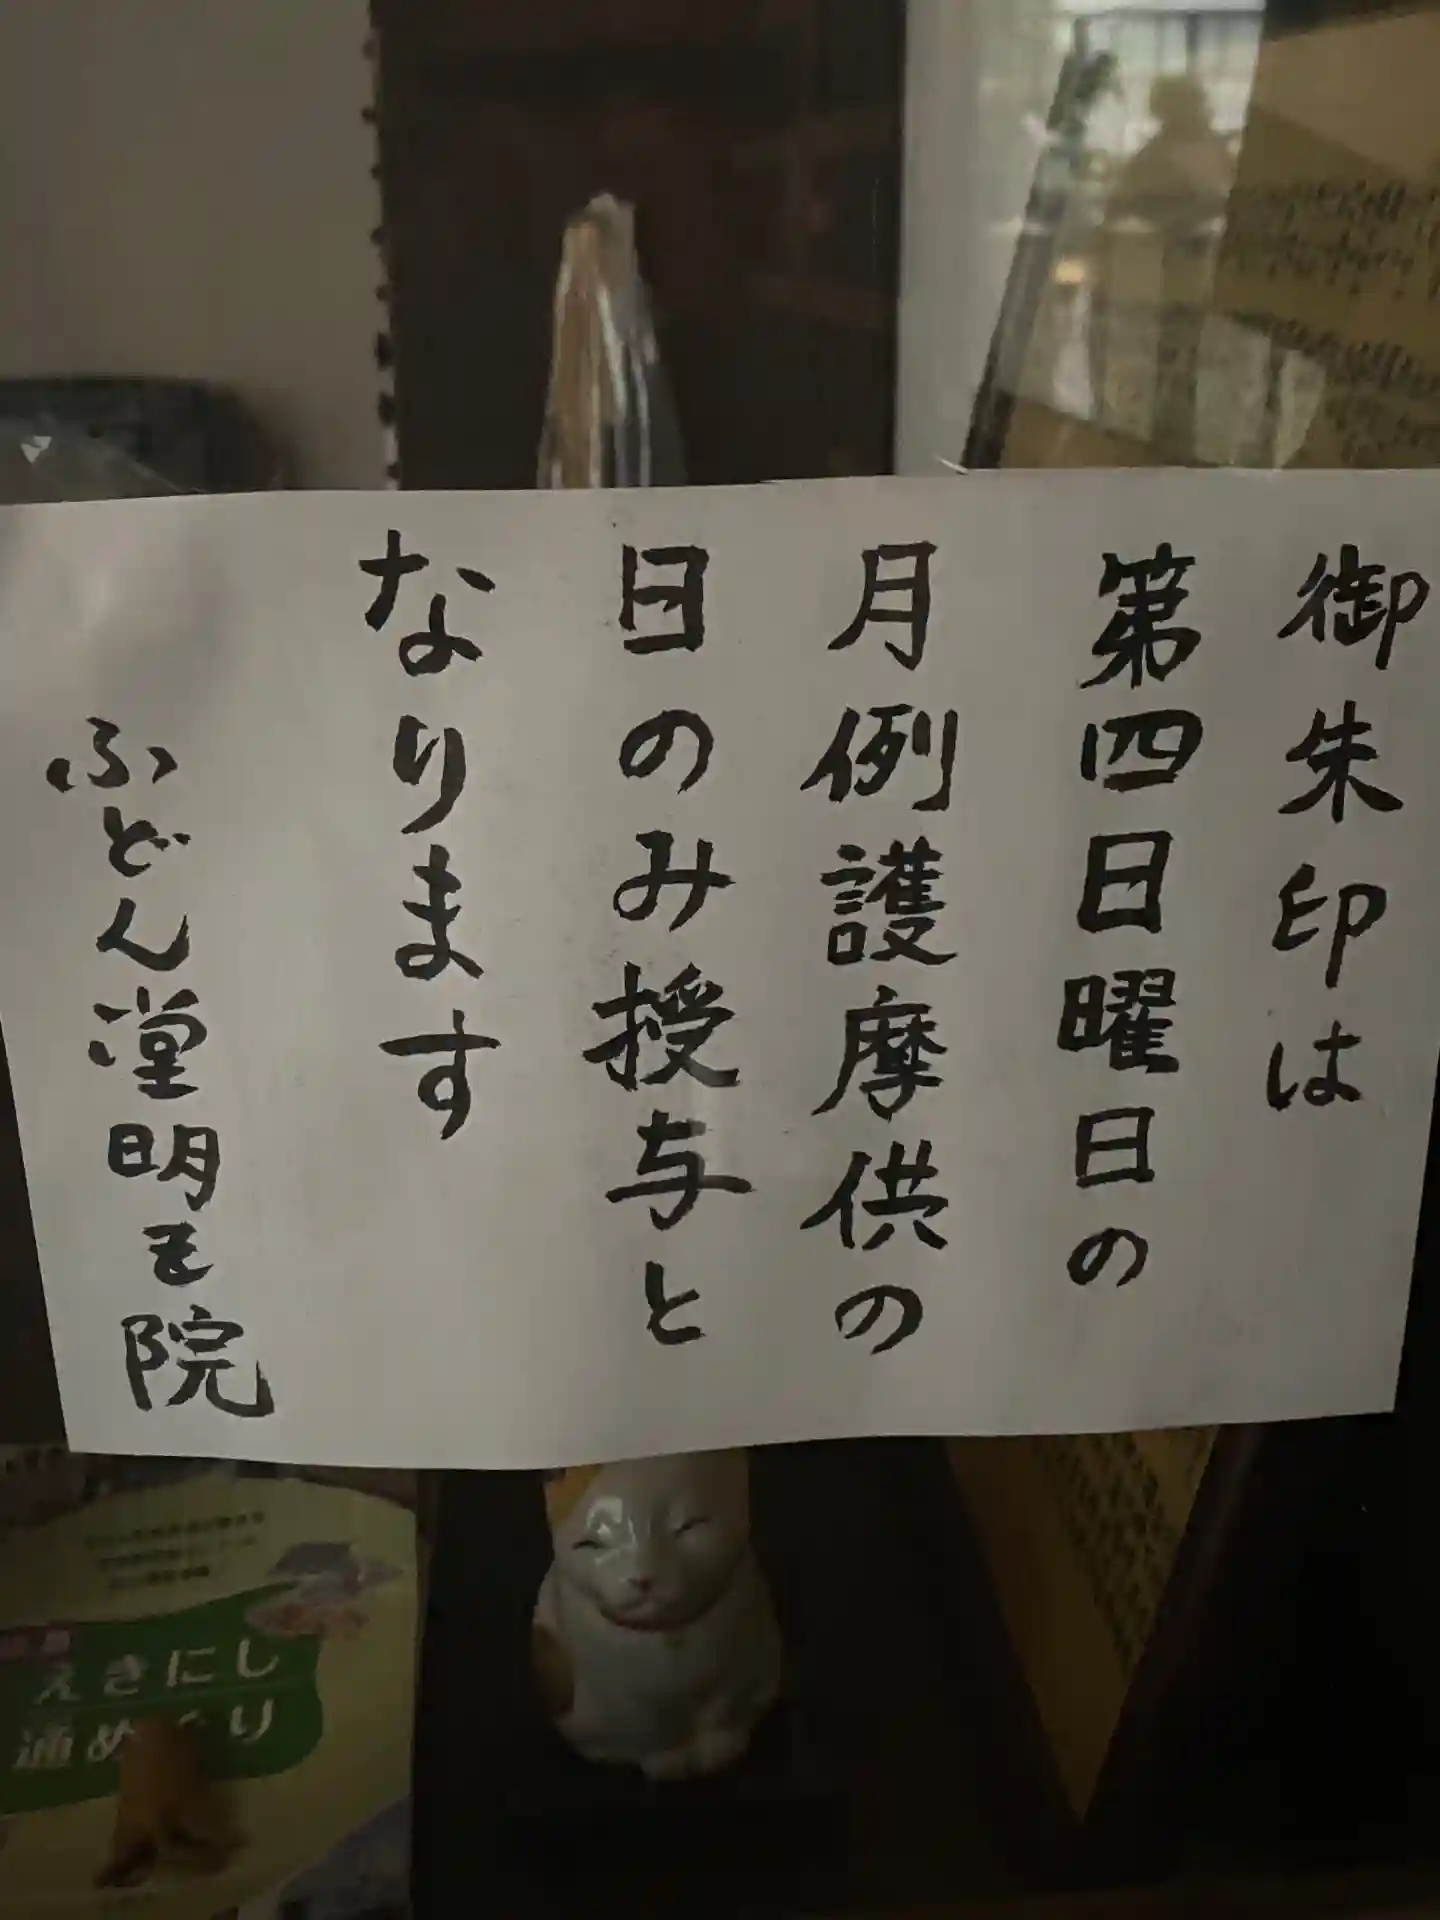 御朱印は
第四日曜日の
月例護摩供の
日のみ授与と
なります
ふどん堂明王院
えきにし